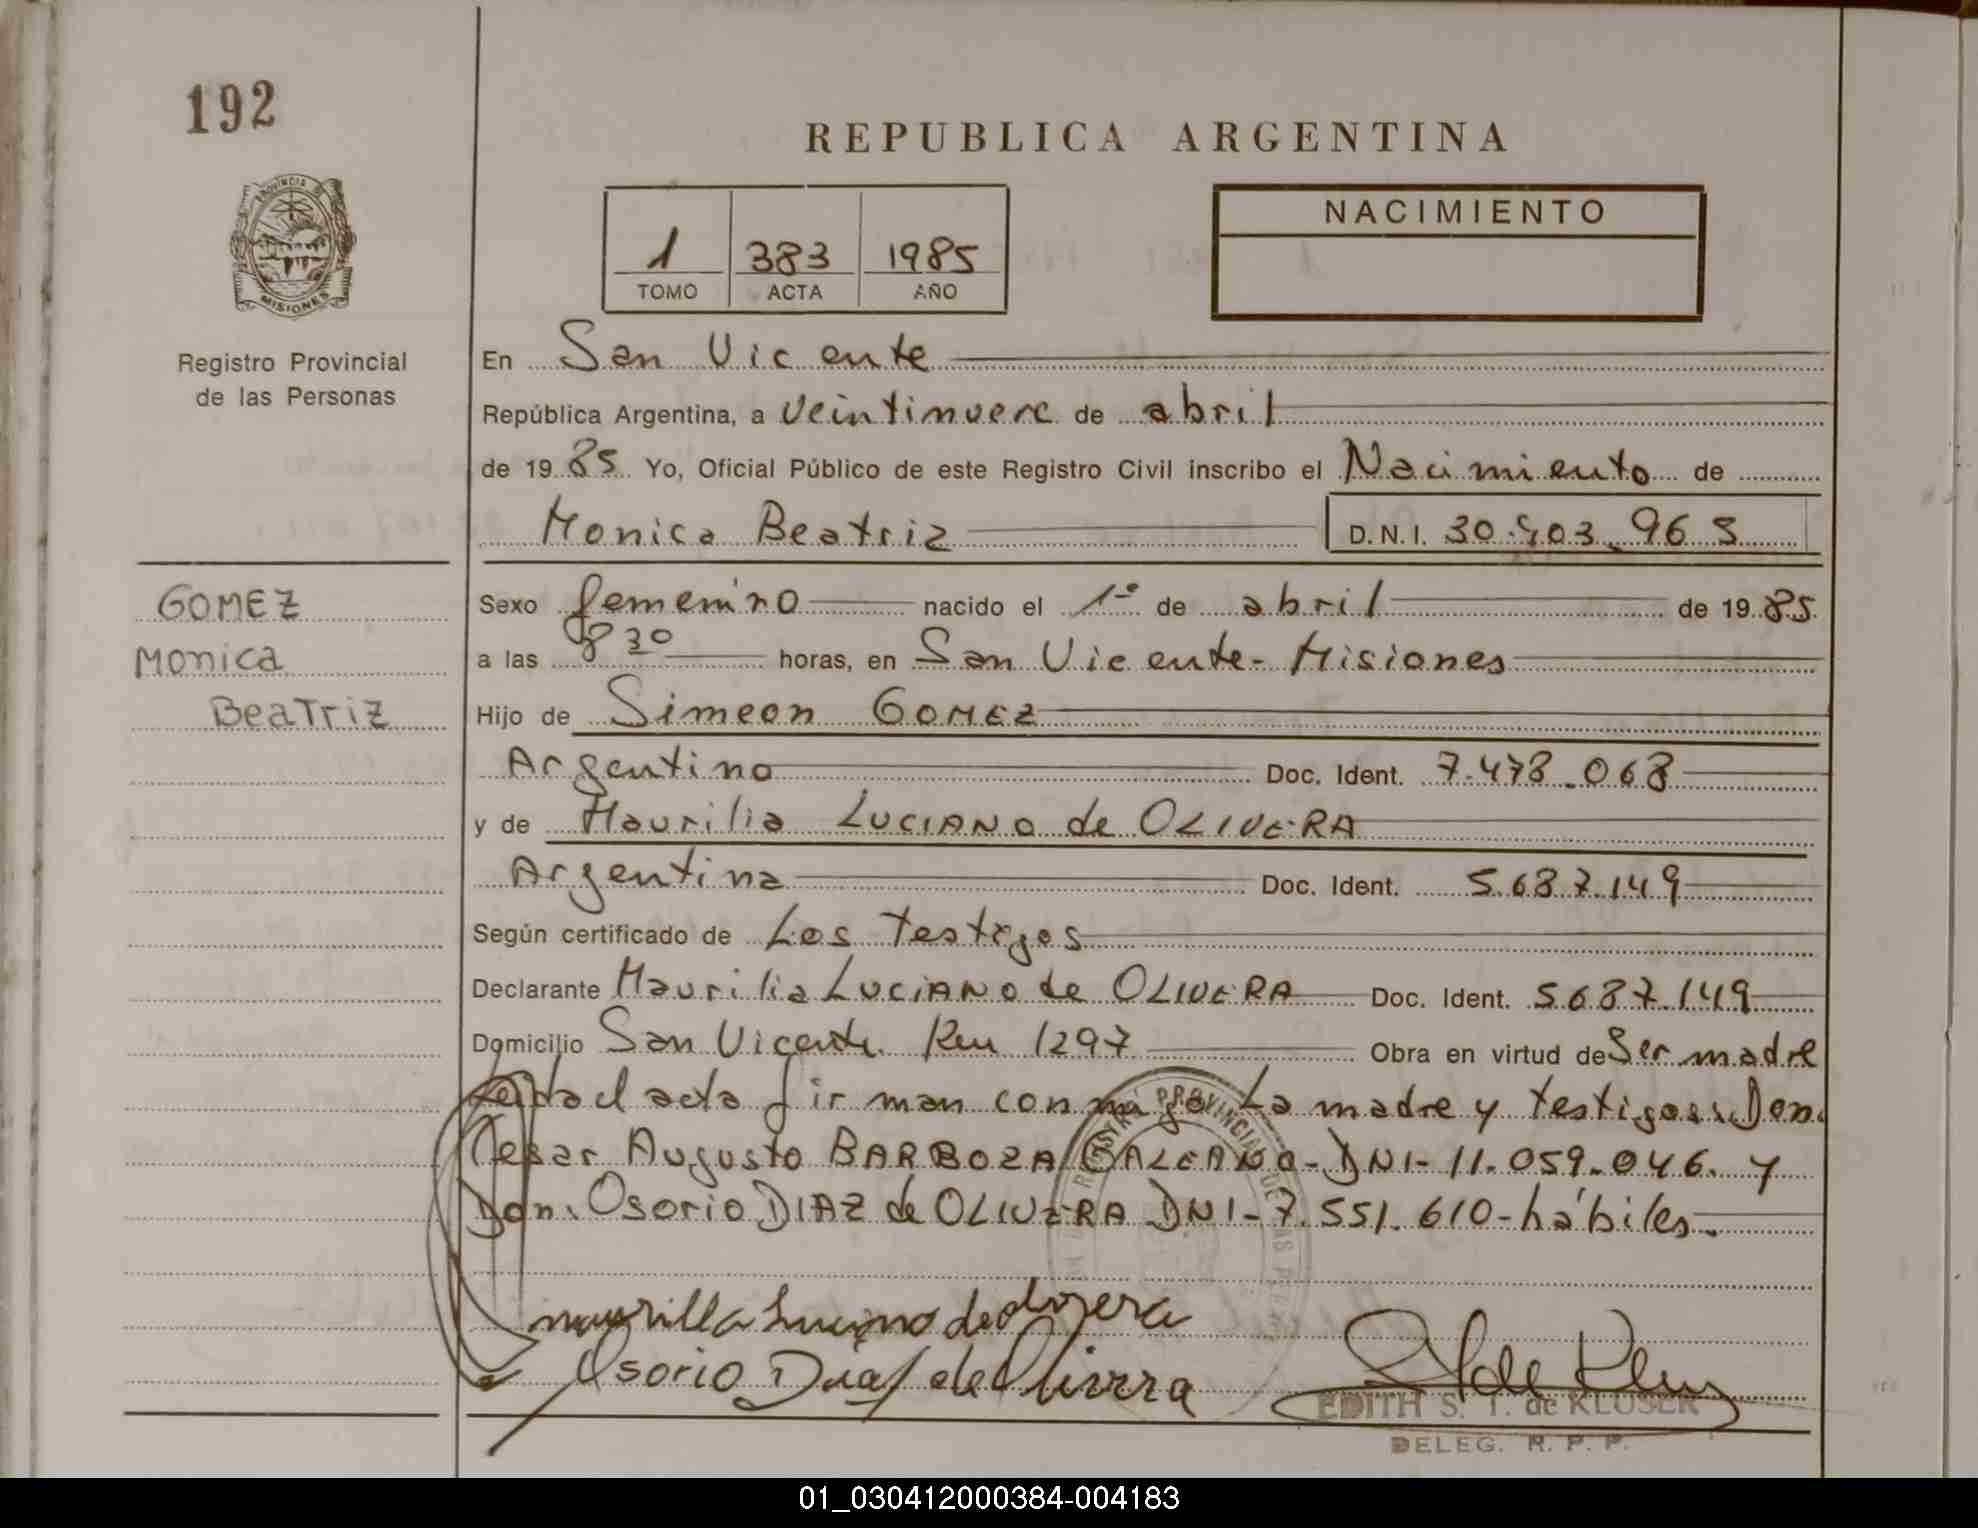 192
REPUBLICA ARGENTINA
PROVINCIA DE
MISIONES
Registro Provincial
de las Personas
1 383 1985
TOMO ACTA AÑO
NACIMIENTO
En San Vicente
República Argentina, a veintinueve de abril
de 19 85 Yo, Oficial Público de este Registro Civil inscribo el Nacimiento de
Monica Beatriz D.N.I. 30.403.965
GOMEZ
Monica
Beatriz
Sexo femenino nacido el 1º de abril de 19 85
a las 8 30 horas, en San Vicente - Misiones
Hijo de Simeon GOMEZ
Argentino Doc. Ident. 7.478.068
y de Maurilia LUCIANO de OLIVERA
Argentina Doc. Ident. 5.687.149
Según certificado de Los testigos
Declarante Maurilia LUCIANO de OLIVERA Doc. Ident. 5.687.149
Domicilio San Vicente Km 1297 Obra en virtud de Ser madre
Leída el acta firman conmigo La madre y testigos: Don.
Cesar Augusto BARBOZA GALEANO - DNI - 11.059.046. y
Don. Osorio DIAZ de OLIVERA DNI - 7.551.610 - hábiles.
maurilla Luciano de olivera
Osorio Diaz de Olivera
EDITH S. T. de KLUSER
DELEG. R. P. P.
01_030412000384-004183